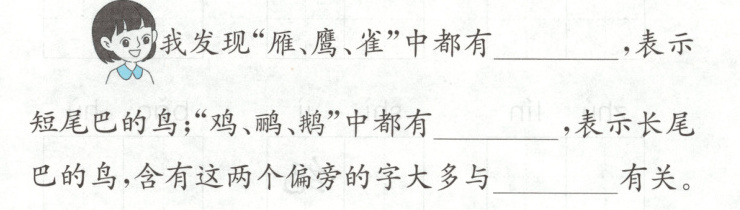 我发现“雁、鹰、雀”中都有________,表示
短尾巴的鸟;“鸡、鹂、鹅”中都有________,表示长尾
巴的鸟,含有这两个偏旁的字大多与________有关。